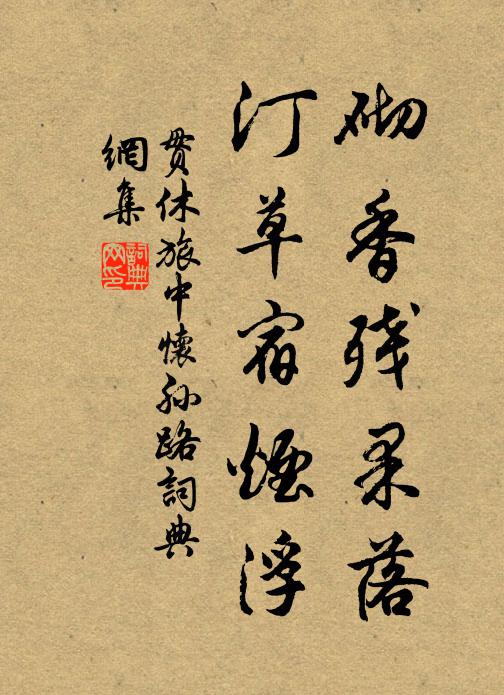 砌香残果落
汀草宿煙浮
貫休旅中懷孙路詞典
網集
詞典
网印